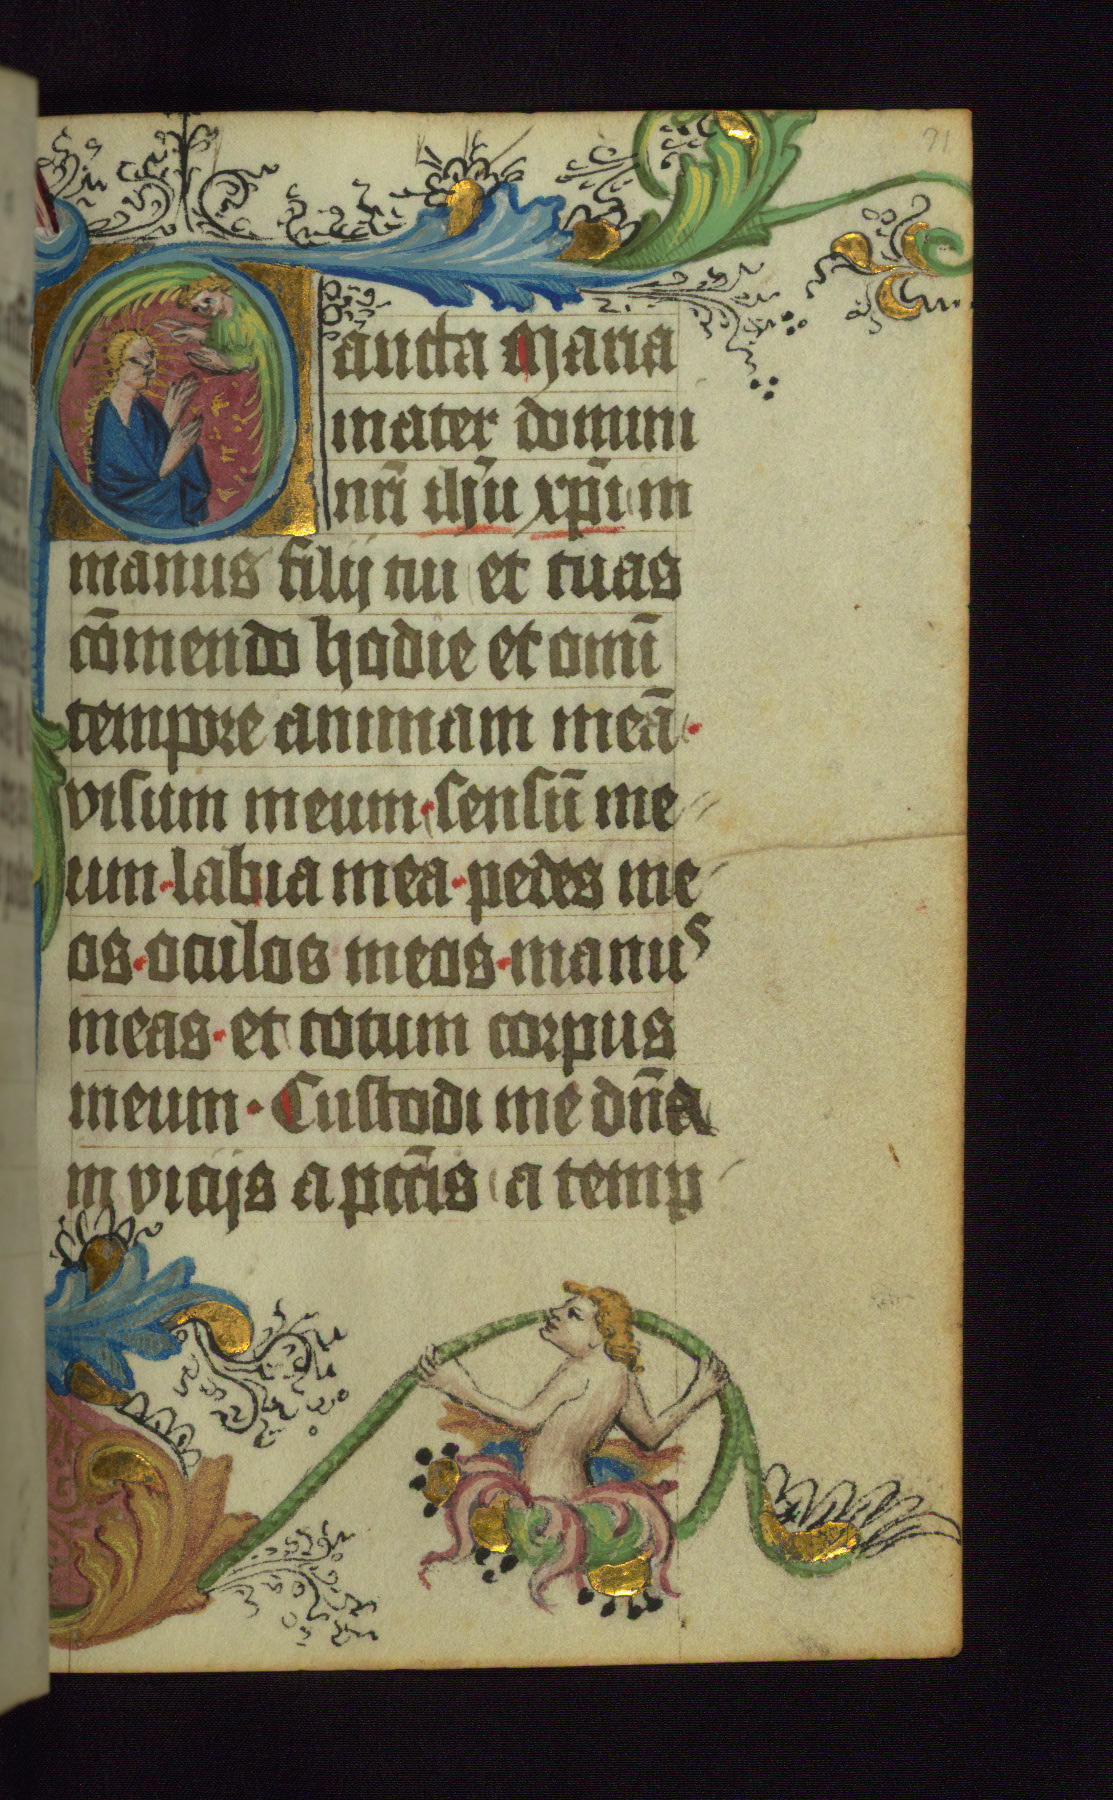 91
Sancta Maria
mater domini
nr̄i ih̄u xp̄i in
manus filij tui et tuas
cōmendo hodie et omī
tempore animam meā·
visum meum·sensū me
um·labia mea·pedes me
os·oculos meos·manus
meas·et totum corpus
meum·Custodi me dn̄a
in vicijs a pccīs a temp